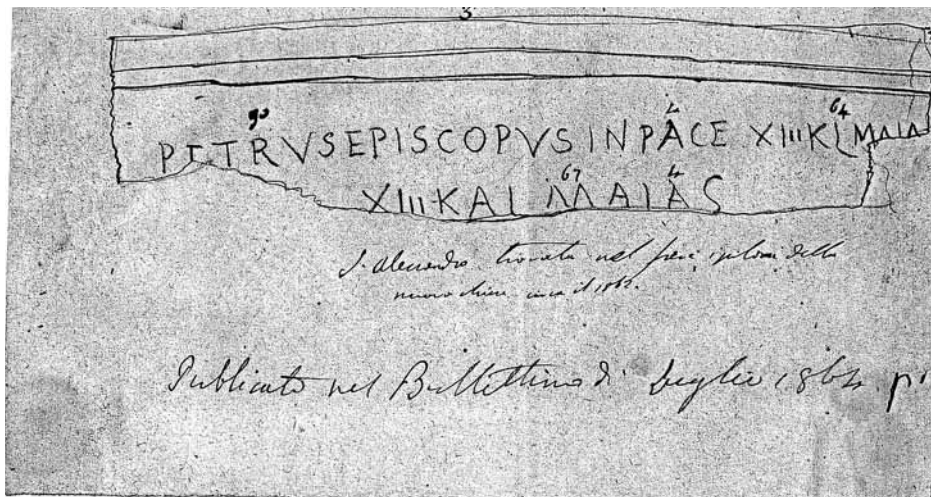 3
90 4 64
PETRVSEPISCOPVS INPACE XIII KL MAIA
67 4
XIII KAL MAIAS
S. Alessandro trovata nel
nuova il 1862.
Publicato nel Bullettino di luglio 1864 p